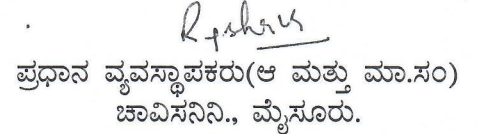 ಪ್ರಧಾನ ವ್ಯವಸ್ಥಾಪಕರು(ಆ ಮತ್ತು ಮಾ.ಸಂ)
ಚಾವಿಸನಿನಿ., ಮೈಸೂರು.